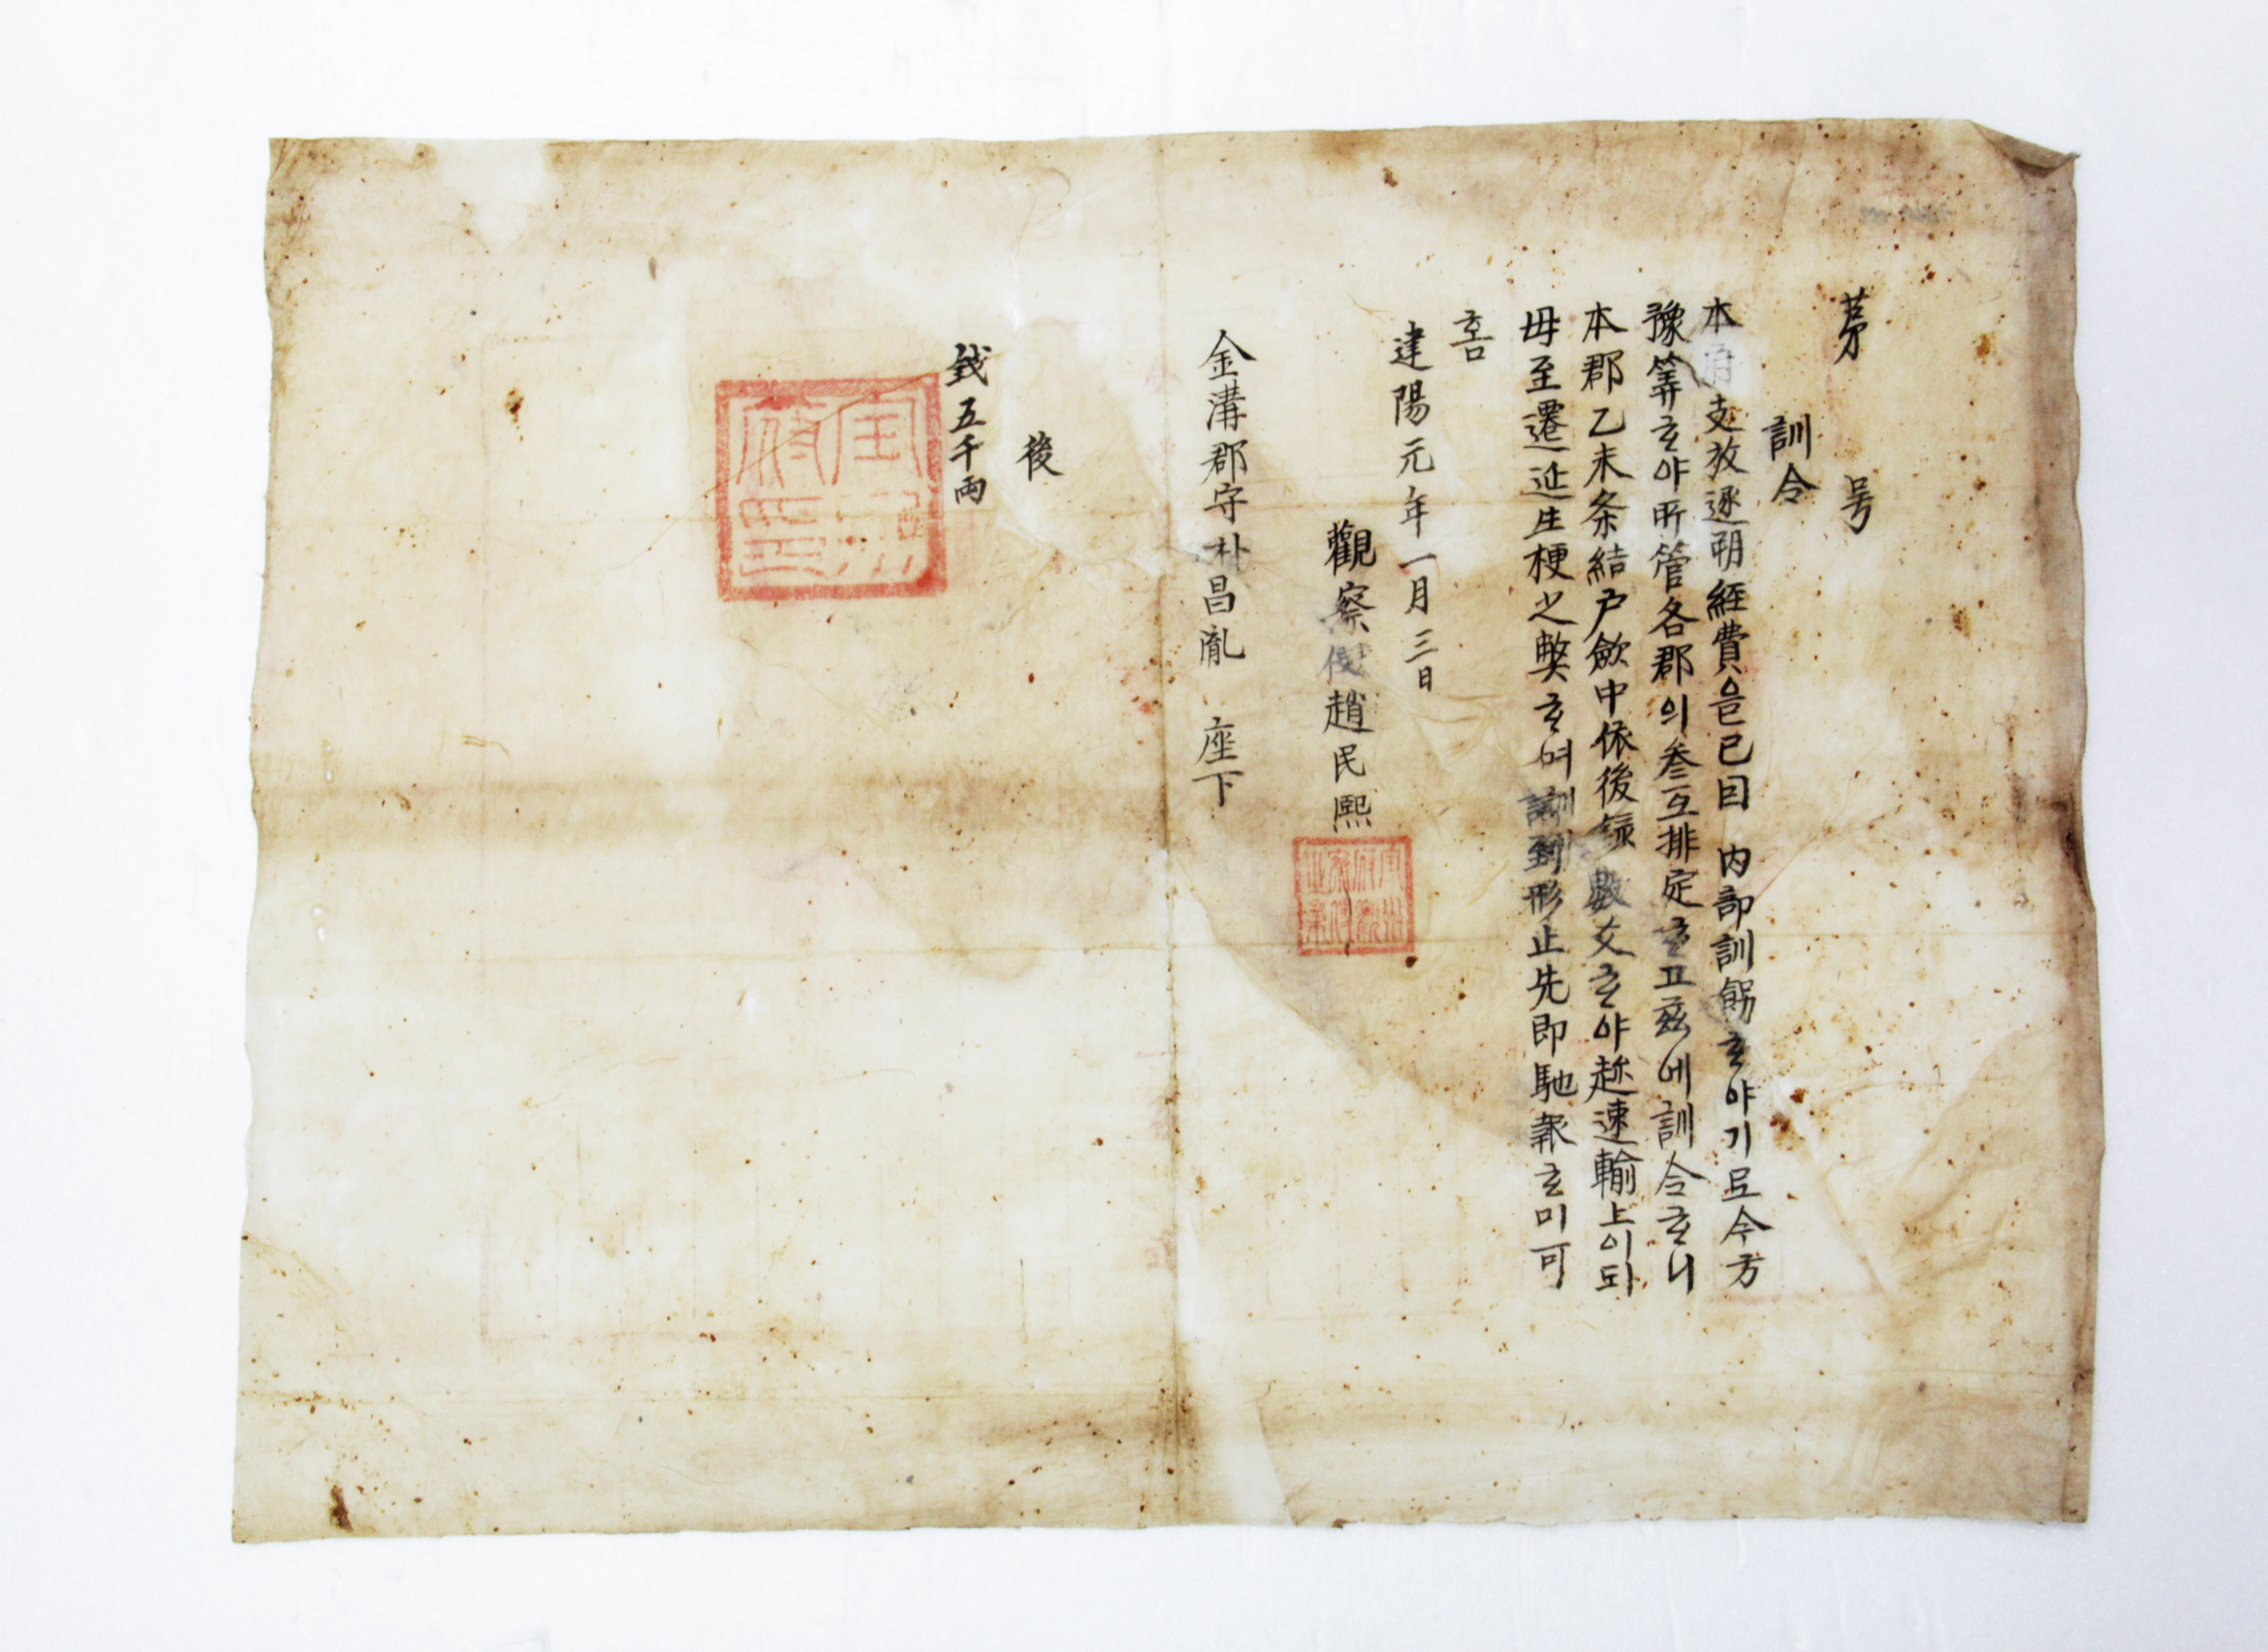 茅 号
訓令
本府支放逐朔經費은已因 內部訓飭ᄒᆞ야기로今方
豫筭ᄒᆞ야所管各郡의叅互排定ᄒᆞ고玆에訓令ᄒᆞ니
本郡乙未条結戶歛中依後錄數爻ᄒᆞ야趂速輸上이되
毋至遷延生梗之弊ᄒᆞ며訓到形止先即馳報ᄒᆞ미可
홈
建陽元年一月三日
觀察使趙民熙
金溝郡守朴昌胤 座下
後
錢五千両